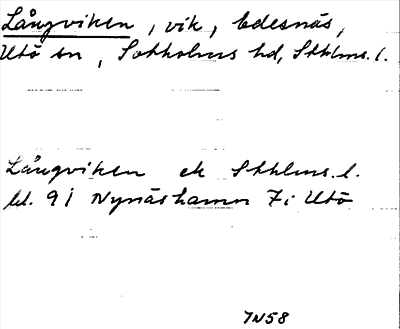 Långviken, vik, Edesnäs,
Utö sn, Sotholms hd, Sthlms. l.
Långviken ek Sthlms. l.
bl. 91 Nynäshamn 7i Utö
7N58